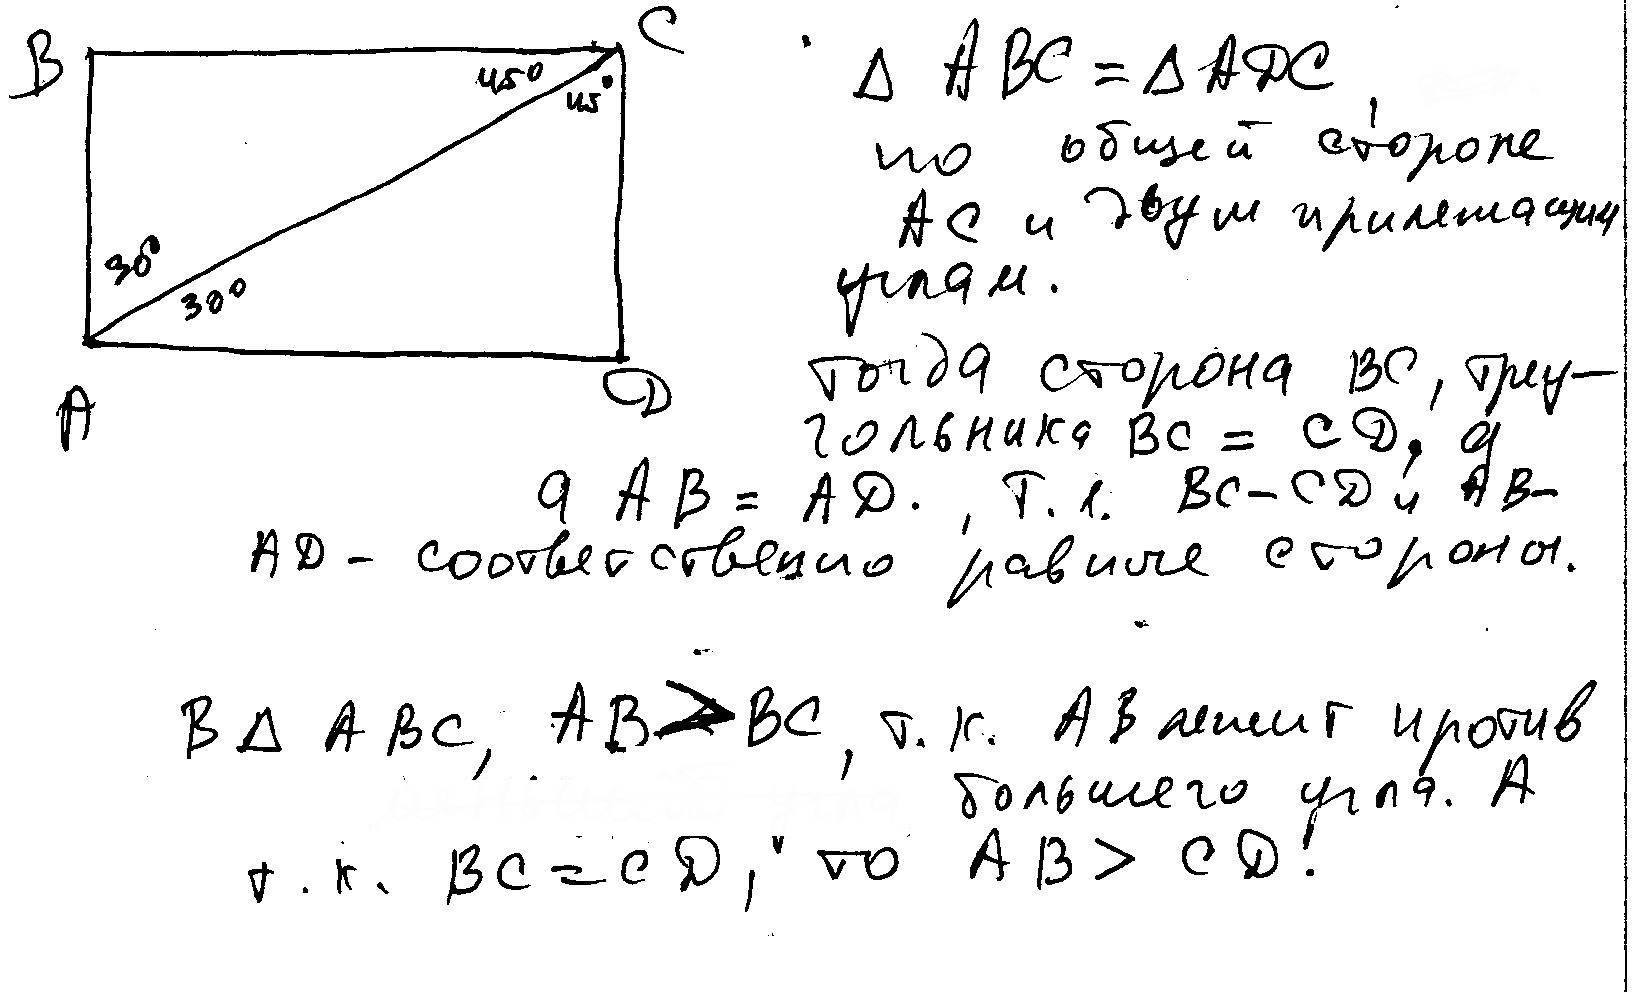 B
C
45°
45°
30°
30°
A
D
Δ ABC = Δ ADC,
по общей стороне
AC и двум прилежащим
углам.
Тогда сторона BC, треу-
гольника BC = CD, а
а AB = AD., т.к. BC-CD и AB-
AD - соответственно равные стороны.
В Δ ABC, AB > BC, т.к. AB лежит против
большего угла. А
т.к. BC = CD, то AB > CD.